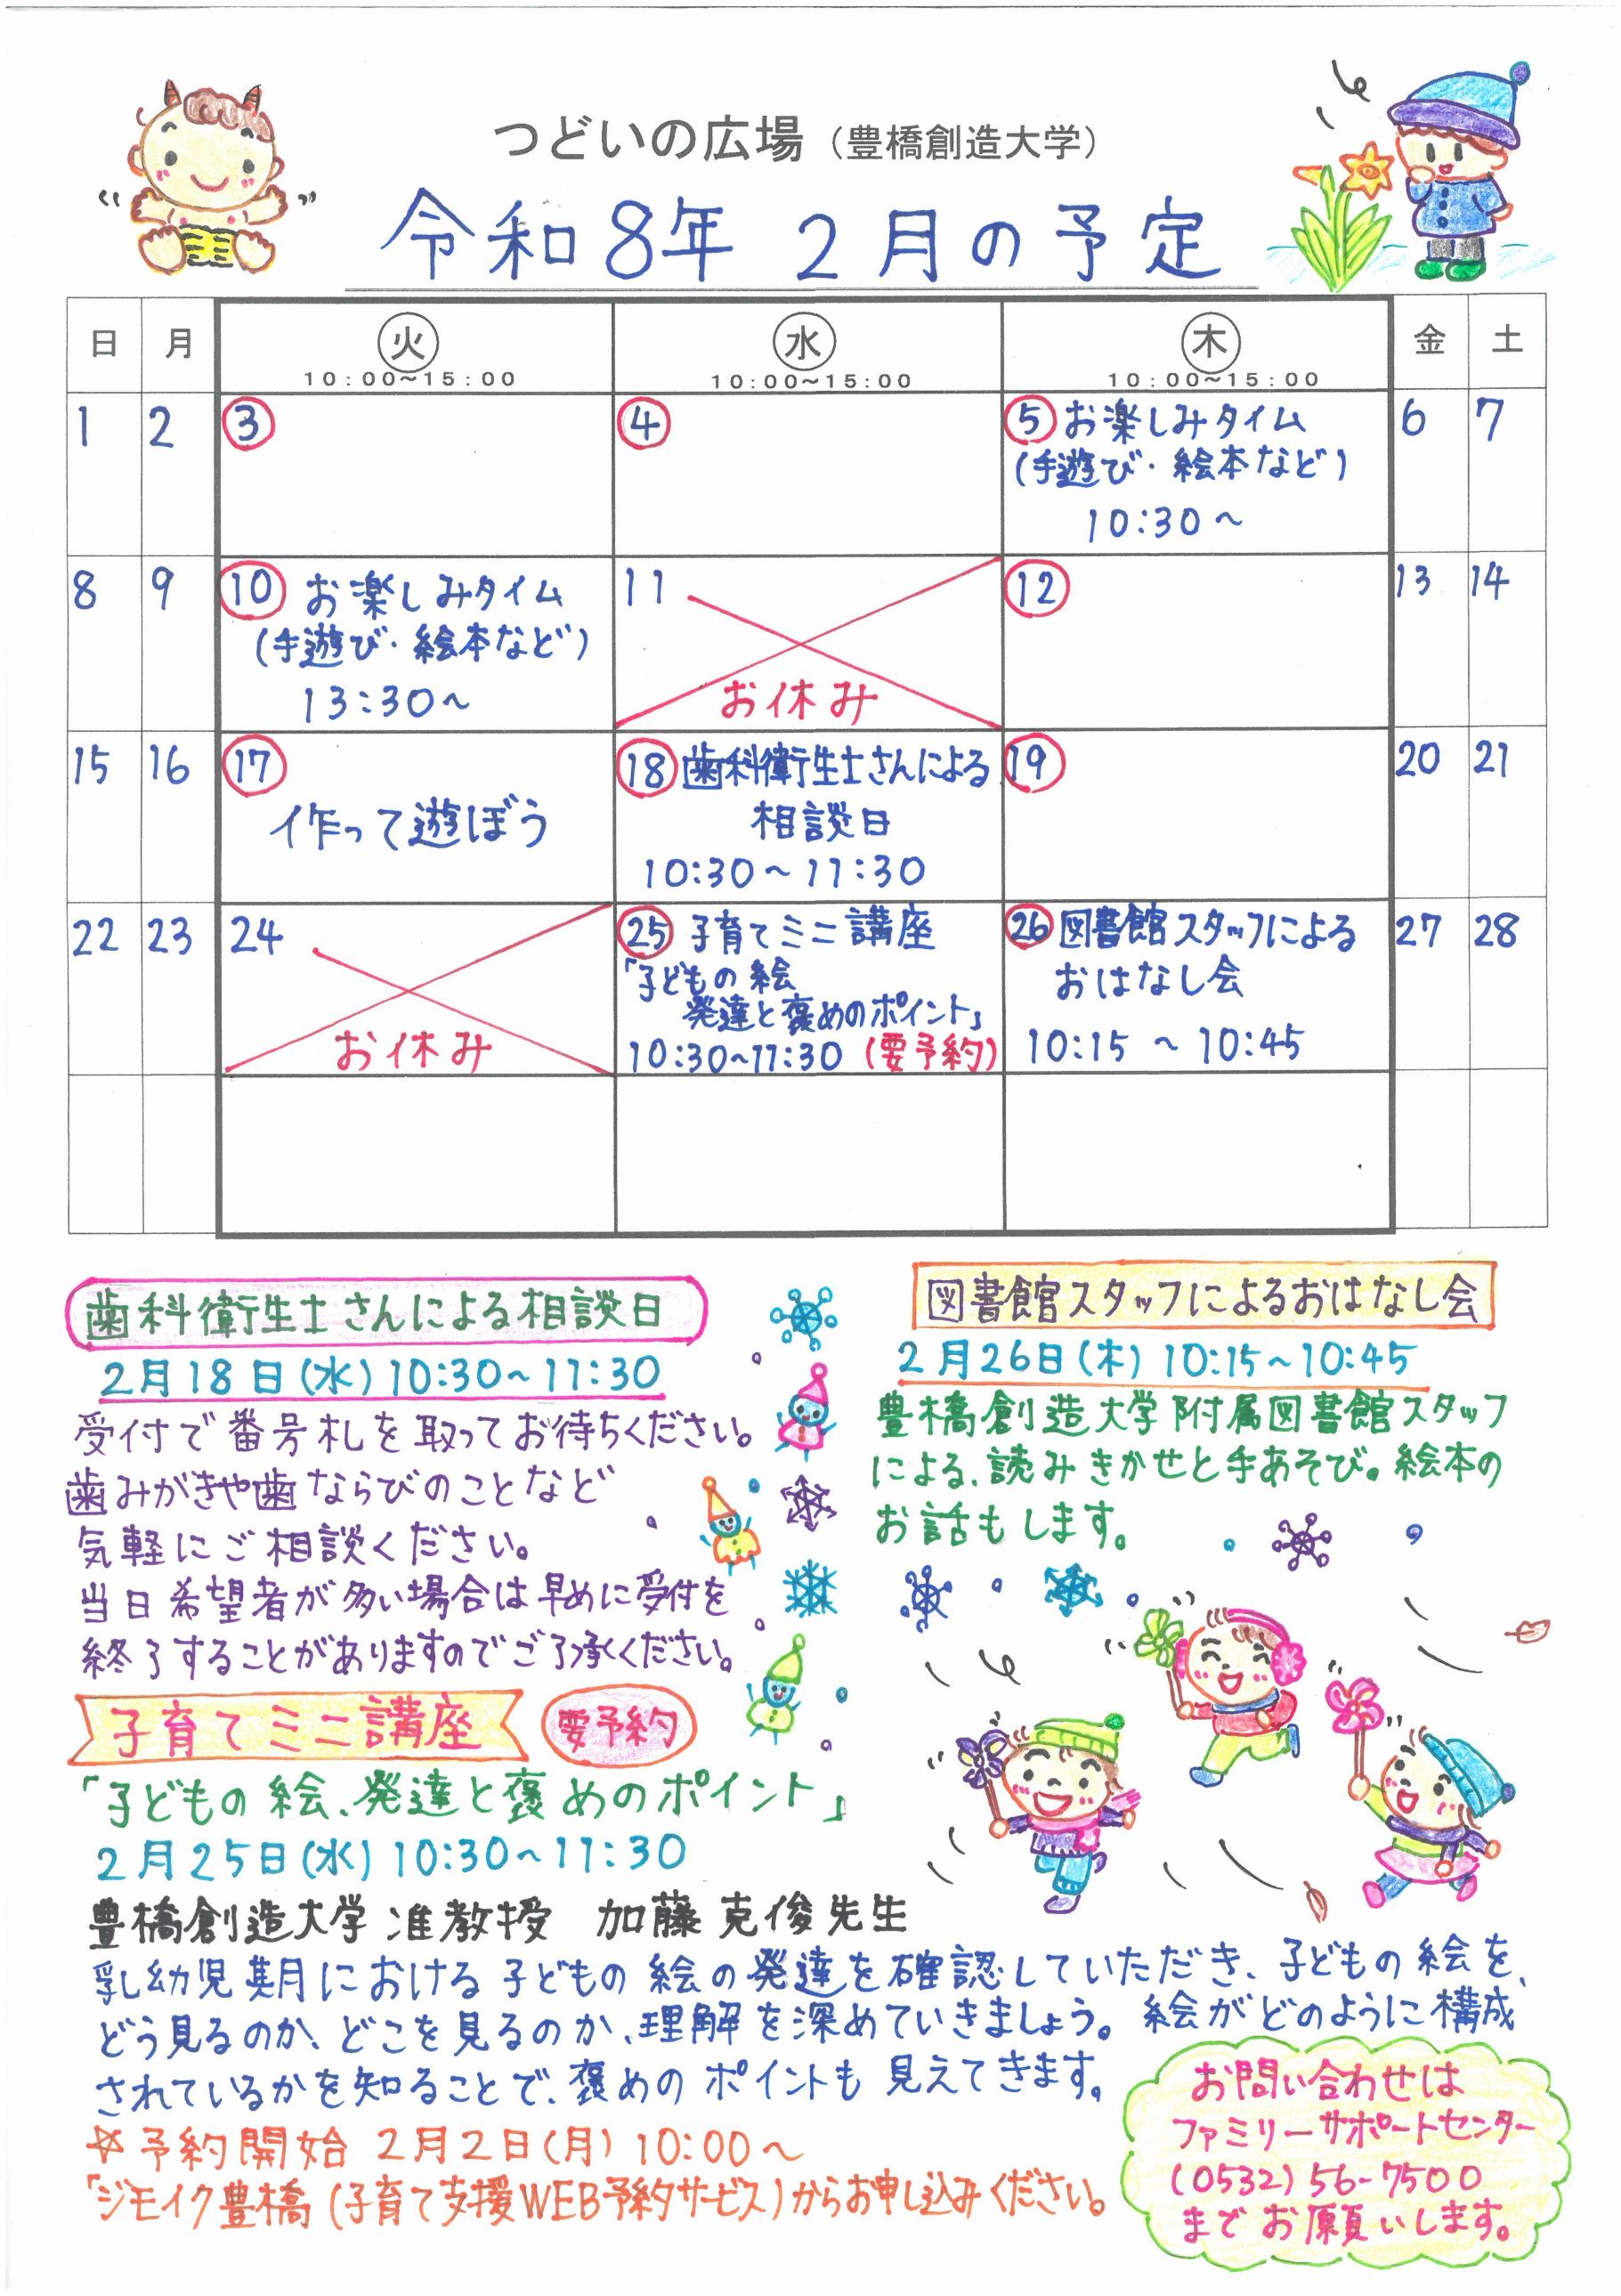 つどいの広場（豊橋創造大学）
令和8年 2月の予定
日 月 火 水 木 金 土
10:00~15:00 10:00~15:00 10:00~15:00
1 2 3 4 5 お楽しみタイム 6 7
(手遊び・絵本など)
10:30～
8 9 10 お楽しみタイム 11 12 13 14
(手遊び・絵本など)
13:30～ お休み
15 16 17 18 歯科衛生士さんによる 19 20 21
作って遊ぼう 相談日
10:30～11:30
22 23 24 25 子育てミニ講座 26 図書館スタッフによる 27 28
「子どもの絵 おはなし会
発達と褒めのポイント」
お休み 10:30~11:30 (要予約) 10:15 ～ 10:45
歯科衛生士さんによる相談日
2月18日(水) 10:30~11:30
受付で番号札を取ってお待ちください。
歯みがきや歯ならびのことなど
気軽にご相談ください。
当日希望者が多い場合は早めに受付を
終了することがありますのでご了承ください。
図書館スタッフによるおはなし会
2月26日(木) 10:15~10:45
豊橋創造大学附属図書館スタッフ
による、読みきかせと手あそび。絵本の
お話もします。
子育てミニ講座 要予約
「子どもの絵、発達と褒めのポイント」
2月25日(水) 10:30~11:30
豊橋創造大学 准教授 加藤克俊先生
乳幼児期における子どもの絵の発達を確認していただき、子どもの絵を、
どう見るのか、どこを見るのか、理解を深めていきましょう。絵がどのように構成
されているかを知ることで、褒めのポイントも見えてきます。
☆予約開始 2月2日(月) 10:00～
「ジモイク豊橋(子育て支援WEB予約サービス)からお申し込みください。
お問い合わせは
ファミリーサポートセンター
(0532) 56-7500
までお願いします。